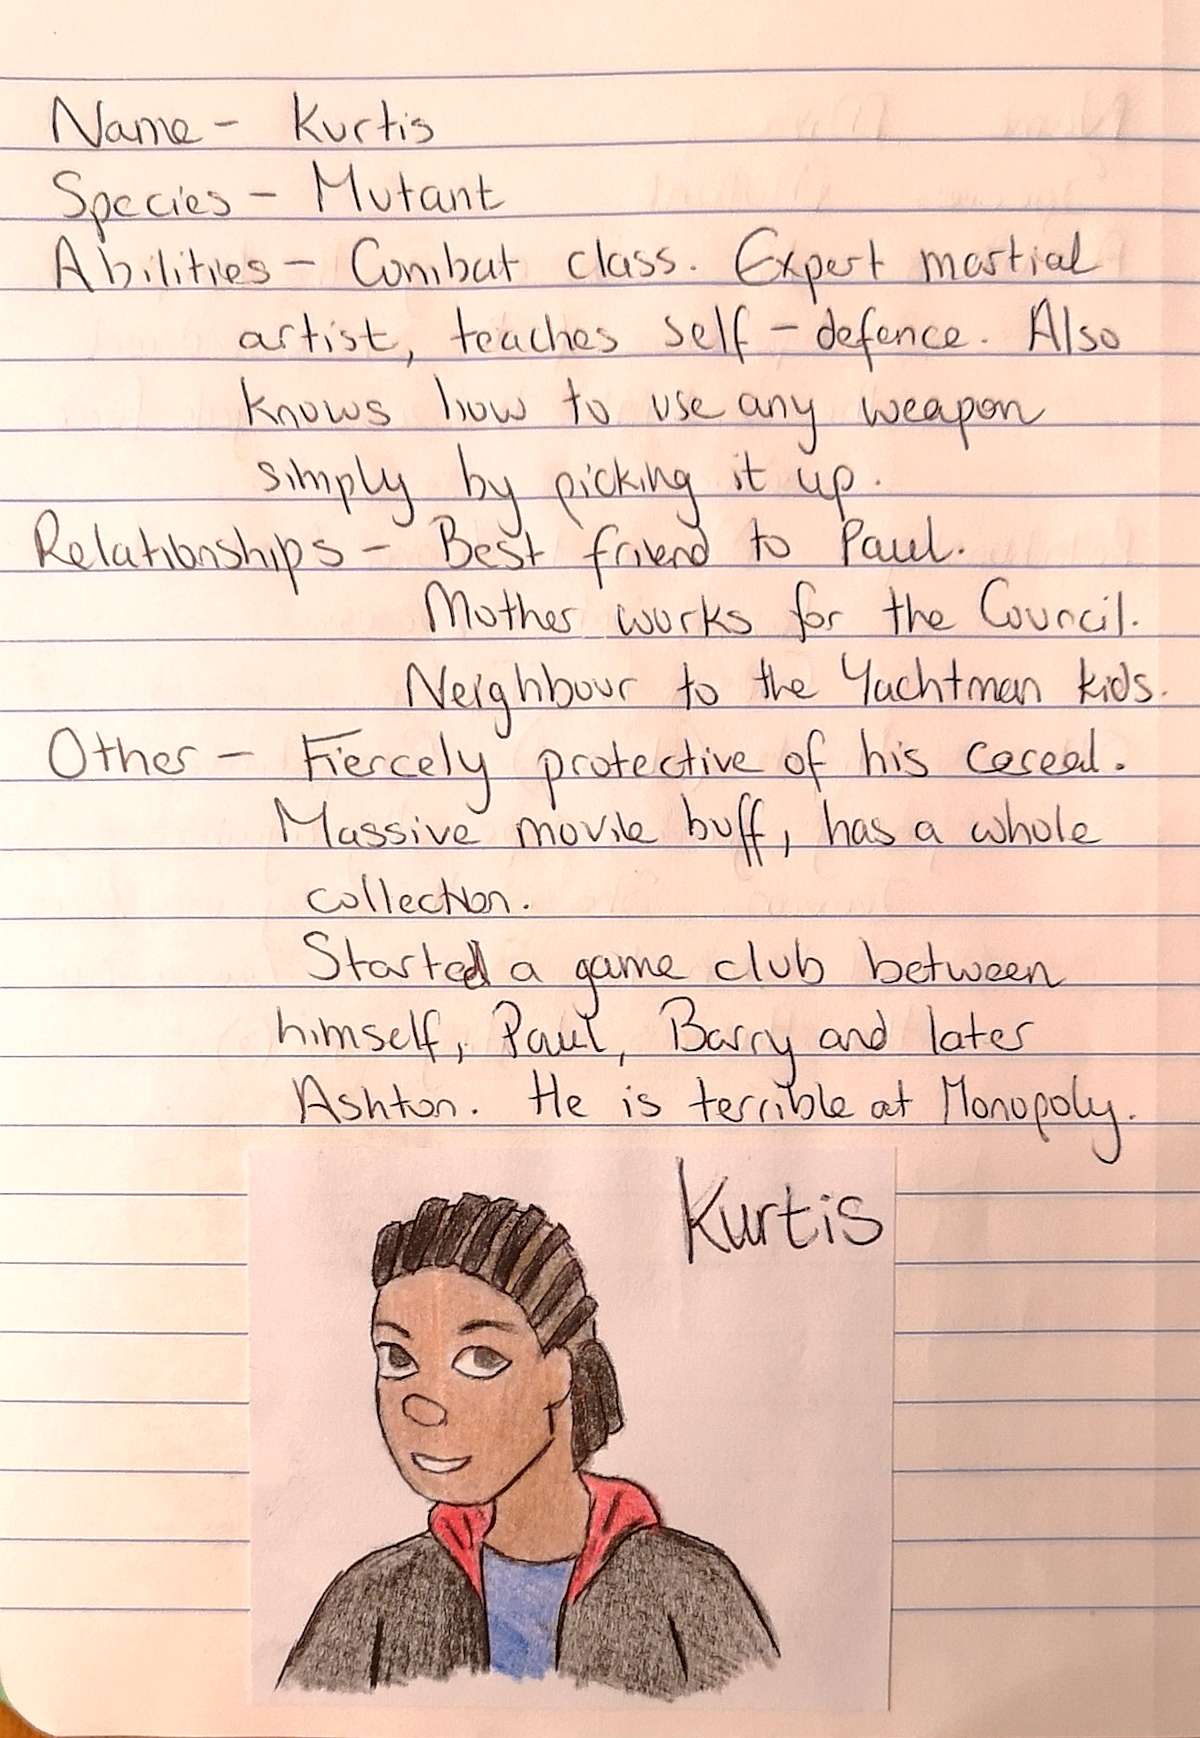 Name - Kurtis
Species - Mutant
Abilities - Combat class. Expert martial
artist, teaches self-defence. Also
knows how to use any weapon
simply by picking it up.
Relationships - Best friend to Paul.
Mother works for the Council.
Neighbour to the Yachtman kids.
Other - Fiercely protective of his cereal.
Massive movie buff, has a whole
collection.
Started a game club between
himself, Paul, Barry and later
Ashton. He is terrible at Monopoly.
Kurtis